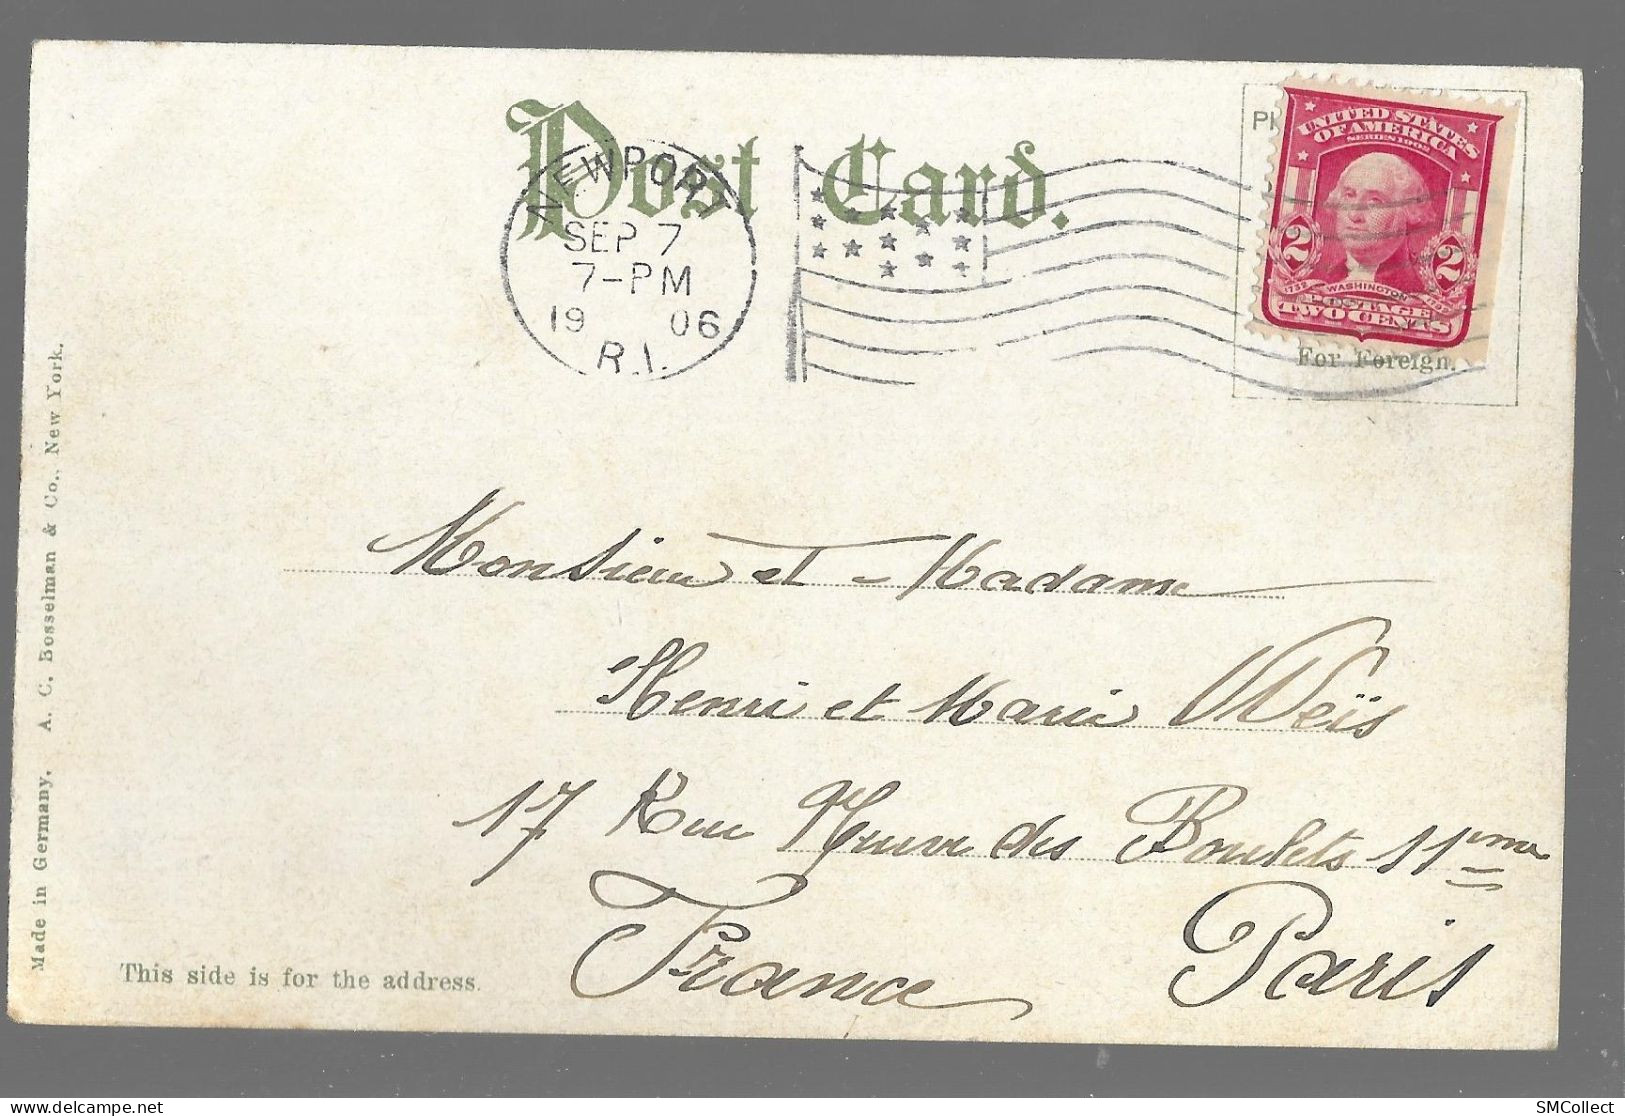 Post Card.
NEWPORT
SEP 7
7-PM
19 06
R.I.
UNITED STATES
OF AMERICA
SERIES 1902
2 2
1732 WASHINGTON 1799
POSTAGE
TWO CENTS
For Foreign.
Monsieur et Madame
Henri et Marie Weïs
17 Rue Neuve des Boulets 11eme
France Paris
This side is for the address.
Made in Germany. A. C. Bosselman & Co., New York.
SMCollect
delcampe.net